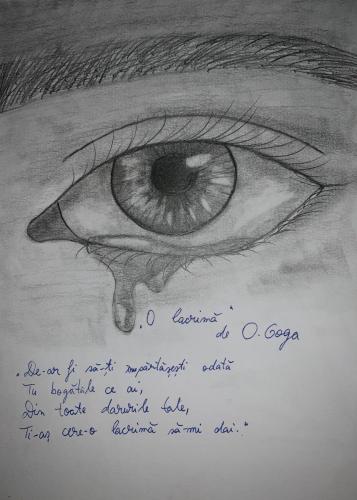 „O lacrimă"
de O. Goga
„De-ar fi să-ți împărtășești odată
Tu bogățiile ce ai,
Din toate darurile tale,
Ți-aș cere-o lacrimă să-mi dai."